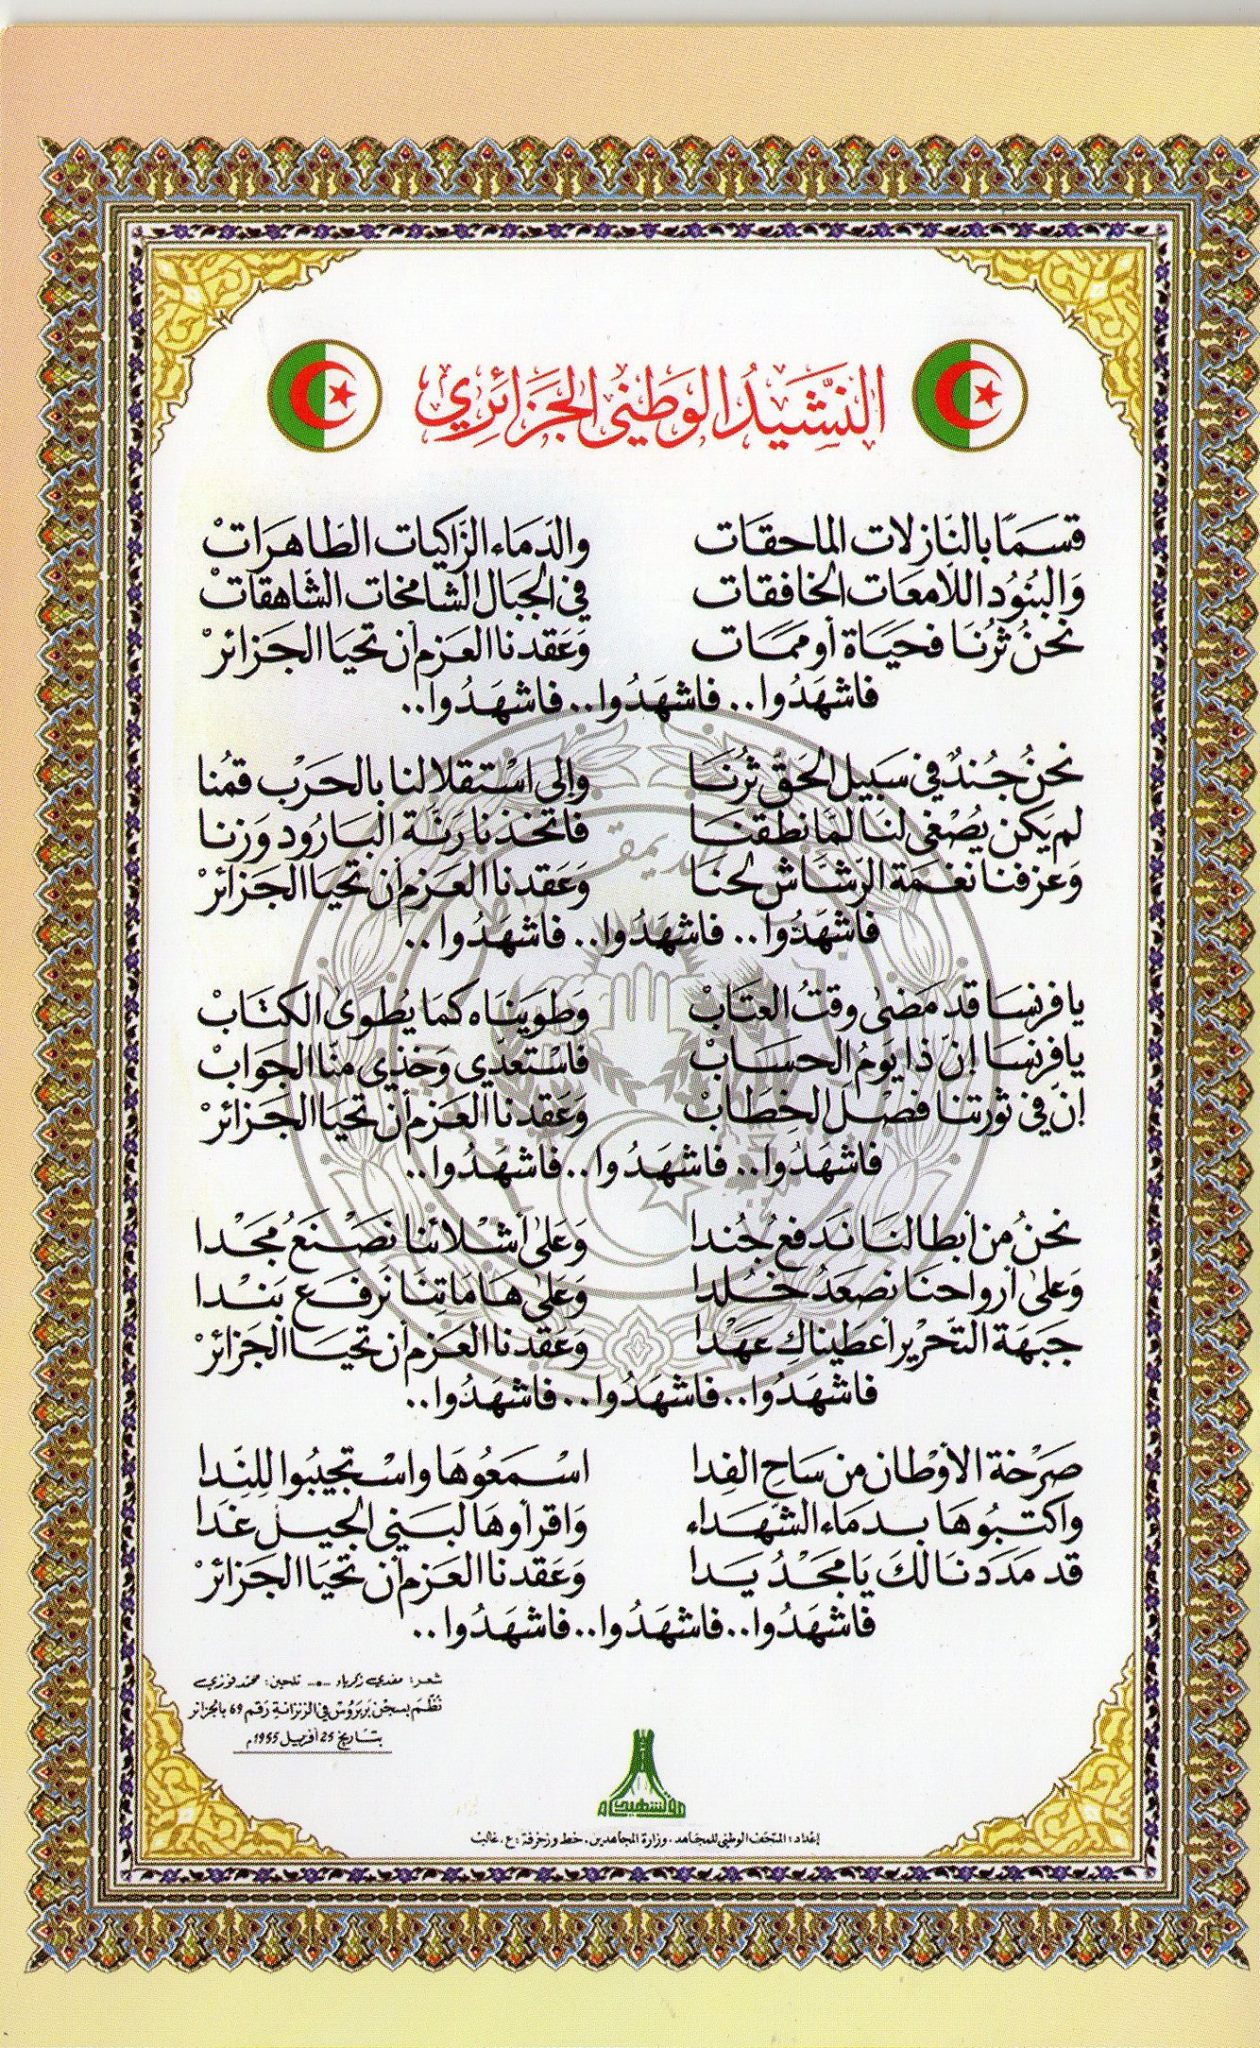 النَّشيدُ الوَطني الجَزَائري
قسَمًا بالنَّازلات الماحقَات والدمَاء الزّاكيات الطَاهرَاتْ
وَالبنُود اللاَّمعَات الخافقَات في الجبَال الشامخات الشَّاهقاتْ
نحنُ ثرْنَا فحَيَاة أو ممَات وَعَقدنا العَزم أن تحيَا الجَزَائرْ
فاشهَدُوا.. فاشهَدُوا.. فاشهَدُوا..
نحنُ جُندٌ في سَبيل الحَقّ ثرنَا وإلى اسْتقلالنا بالحَرْب قمُنا
لم يَكن يُصْغى لنَا لمَّا نطقنَا فاتخذنا رَنّة البَارُود وَزنا
وَعزفنا نغمَة الرَشاش لحنَا وَعَقدنا العَزم أن تحيَا الجَزائرْ
فاشهَدُوا.. فاشهَدُوا.. فاشهَدُوا..
يا فرنسَا قد مَضىٰ وقتُ العتَابْ وَطوَينَاه كمَا يُطوى الكتَابْ
يا فرنسَا إنّ ذا يَومُ الحسَابْ فاسْتعدِّي وَخذي منَّا الجَوَابْ
إنّ في ثورتنا فصْل الخِطَابْ وَعَقدنا العَزم أن تحيَا الجَزائرْ
فاشهَدُوا.. فاشهَدُوا.. فاشهَدُوا..
نحنُ من أبطالنَا نَدفعُ جُندا وَعَلىٰ أشْلائنا نَصْنَعُ مَجْدا
وَعَلىٰ أرواحنَا نصعَدُ خُلدا وَعَلىٰ هَامَاتِنَا نَرفَع بَنْدا
جَبهَة التَحْرير أعطيناكِ عَهْدا وَعَقدنا العَزم أن تحيَا الجَزائرْ
فاشهَدُوا.. فاشهَدُوا.. فاشهَدُوا..
صَرْخة الأوْطان من سَاح الفِدا اسْمَعُوهَا واسْتجيبُوا للِنِّدا
واكتبُوهَا بدمَاء الشهَداء وَاقرأوهَا لبَني الجيل غَدا
قد مَدَدنَا لكَ يَا مَجْدُ يَدا وَعَقدنا العَزم أن تحيَا الجَزائرْ
فاشهَدُوا.. فاشهَدُوا.. فاشهَدُوا..
شعر: مفدي زكرياء -٥- تلحين: محمّد فوزي
نُظم بسجْن بَربَرُوسْ في الزنزانةِ رَقم 69 بالجزائر
بتاريخ 25 أفريل 1955م
الشهيد
إعْدَاد: المتحَف الوطني للمجَاهد. وزارة المجَاهدين. خط وزخرفة: ع. غالب